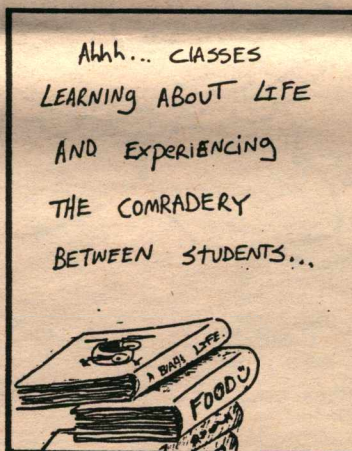 Ahhh... CLASSES
LEARNING ABOUT LIFE
AND EXPERIENCING
THE COMRADERY
BETWEEN STUDENTS...
LIFE.
FOOD